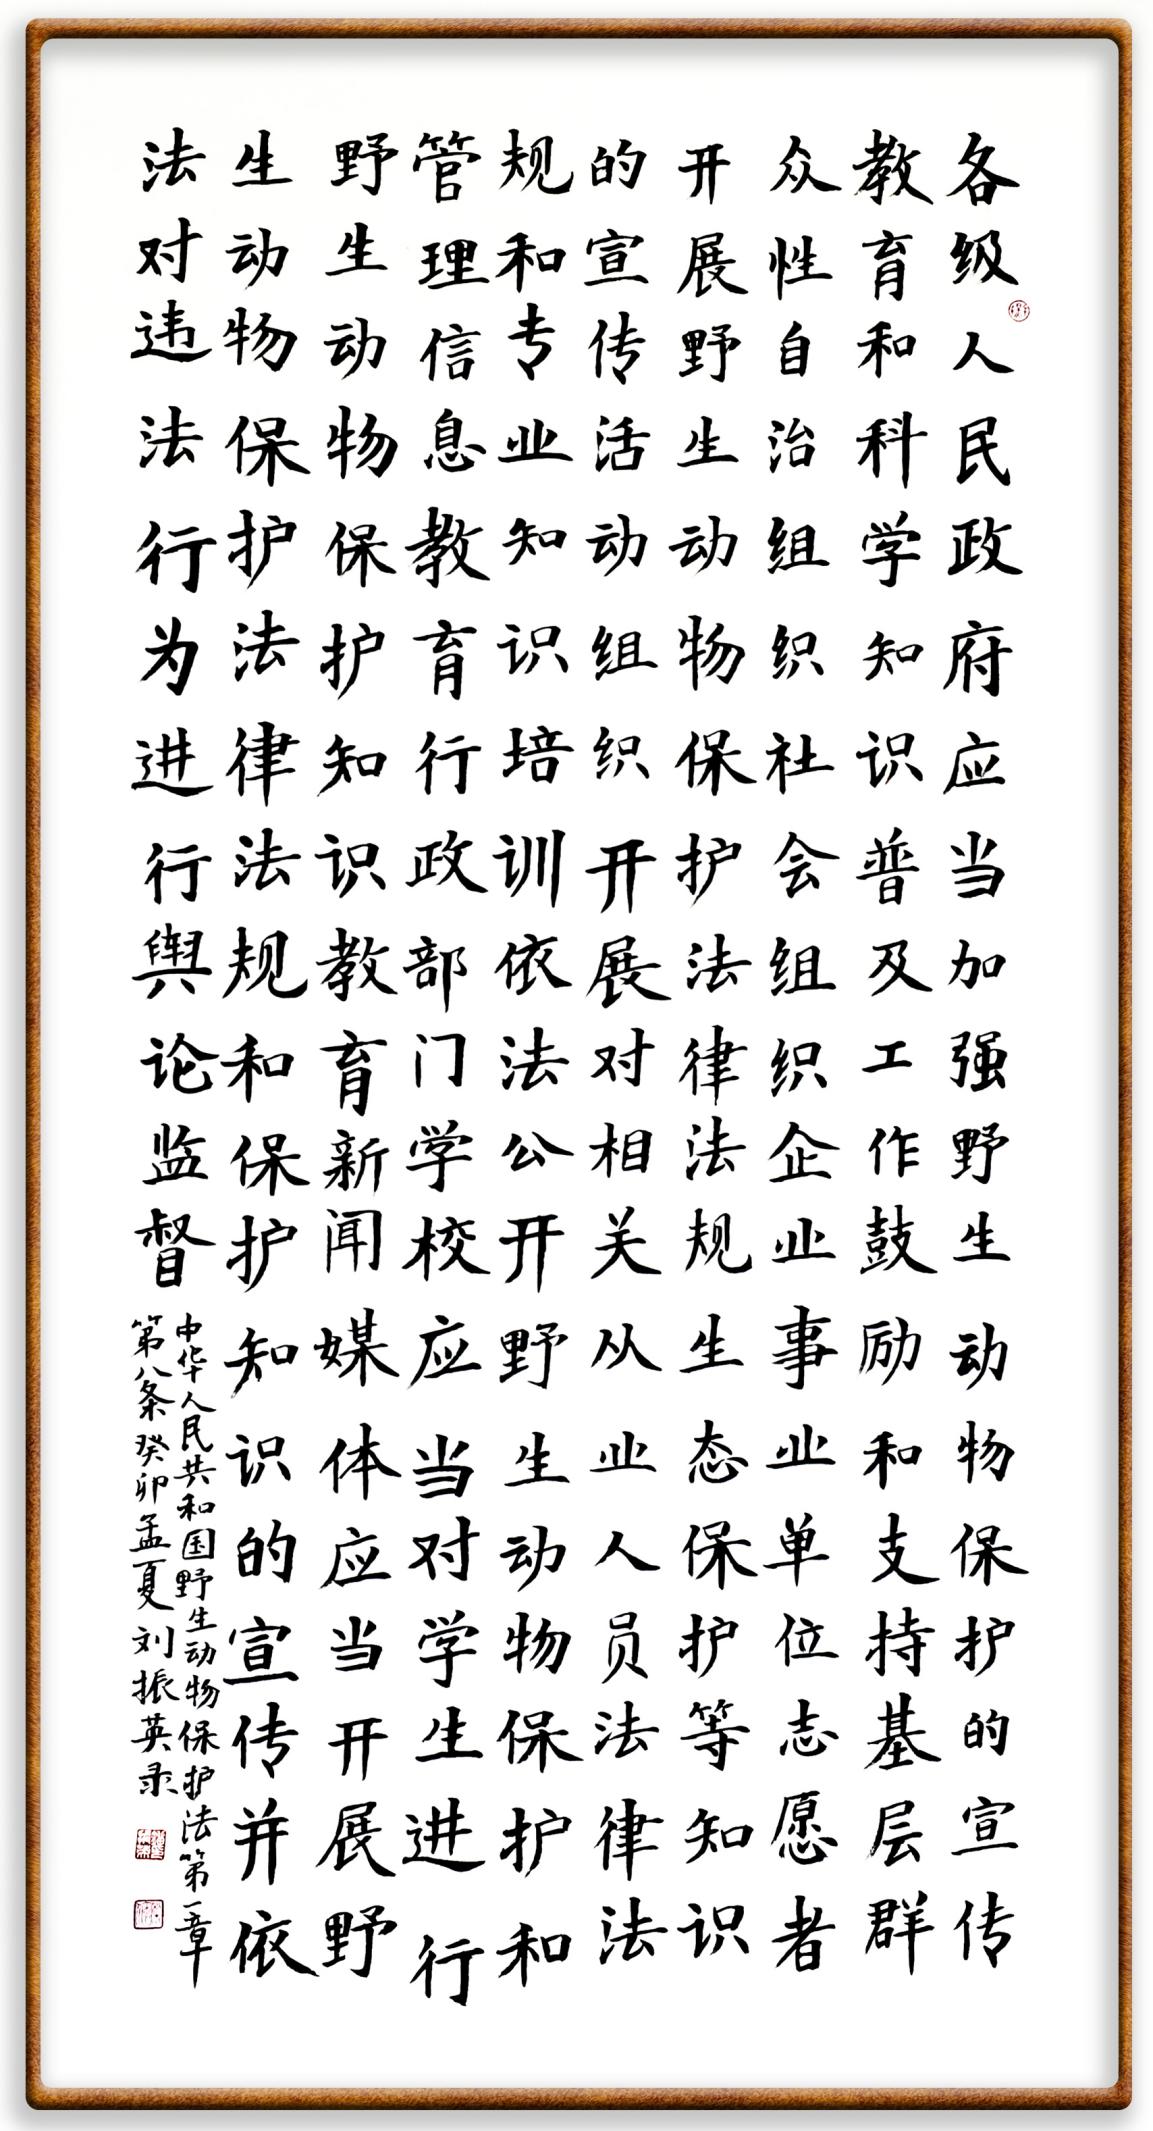 各级人民政府应当加强野生动物保护的宣传
教育和科学知识普及工作鼓励和支持基层群
众性自治组织社会组织企业事业单位志愿者
开展野生动物保护法律法规生态保护等知识
的宣传活动组织开展对相关从业人员法律法
规和专业知识培训依法公开野生动物保护和
管理信息教育行政部门学校应当对学生进行
野生动物保护知识教育新闻媒体应当开展野
生动物保护法律法规和保护知识的宣传并依
法对违法行为进行舆论监督
中华人民共和国野生动物保护法第一章
第八条癸卯孟夏刘振英录